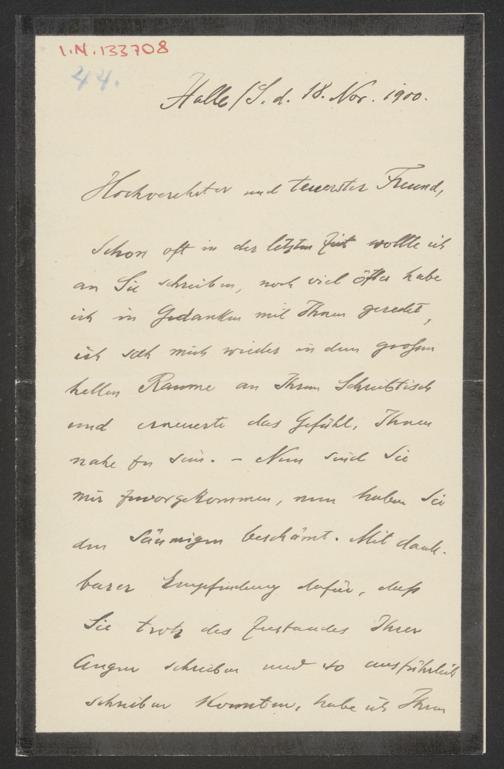 I.N. 133708
44.
Halle/S. d. 18. Nov. 1900.
Hochverehrter und teuerster Freund,
Schon oft in der letzten Zeit wollte ich
an Sie schreiben, noch viel öfter habe
ich in Gedanken mit Ihnen geredet,
ich sah mich wieder in dem großen
hellen Raume an Ihrem Schreibtisch
und erneuerte das Gefühl, Ihnen
nahe zu sein. – Nun sind Sie
mir zuvorgekommen, nun haben Sie
den Säumigen beschämt. Mit dank-
barer Empfindung dafür, daß
Sie trotz des Zustandes Ihrer
Augen schrieben und so ausführlich
schreiben konnten, habe ich Ihren